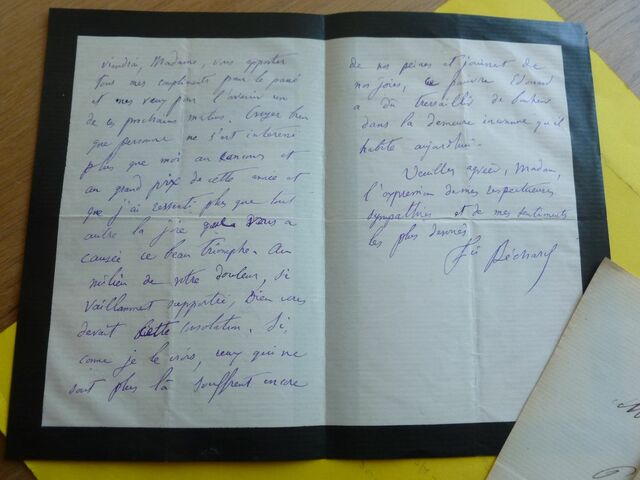 viendrai, Madame, vous apporter
tous mes compliments pour le passé
et mes vœux pour l'avenir un
de ces prochains matins. Croyez bien
que personne ne s'est intéressé
plus que moi au concours et
au grand prix de cette année et
que j'ai ressenti plus que tout
autre la joie que vous a
causée ce beau triomphe. Au
milieu de votre douleur, si
vaillamment supportée, Dieu vous
devait cette consolation. Si,
comme je le crois, ceux qui ne
sont plus là souffrent encore
de nos peines et jouissent de
nos joies, ce pauvre Edouard
a dû tressaillir de bonheur
dans la demeure inconnue qu'il
habite aujourd'hui.
Veuillez agréer, Madame,
l'expression de mes respectueuses
sympathies et de mes sentiments
les plus dévoués